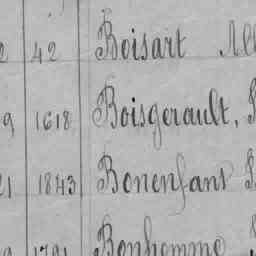 2 42 Boisart All
9 1618 Boisgerault,
21 1843 Bonenfant
1791 Bonhomme